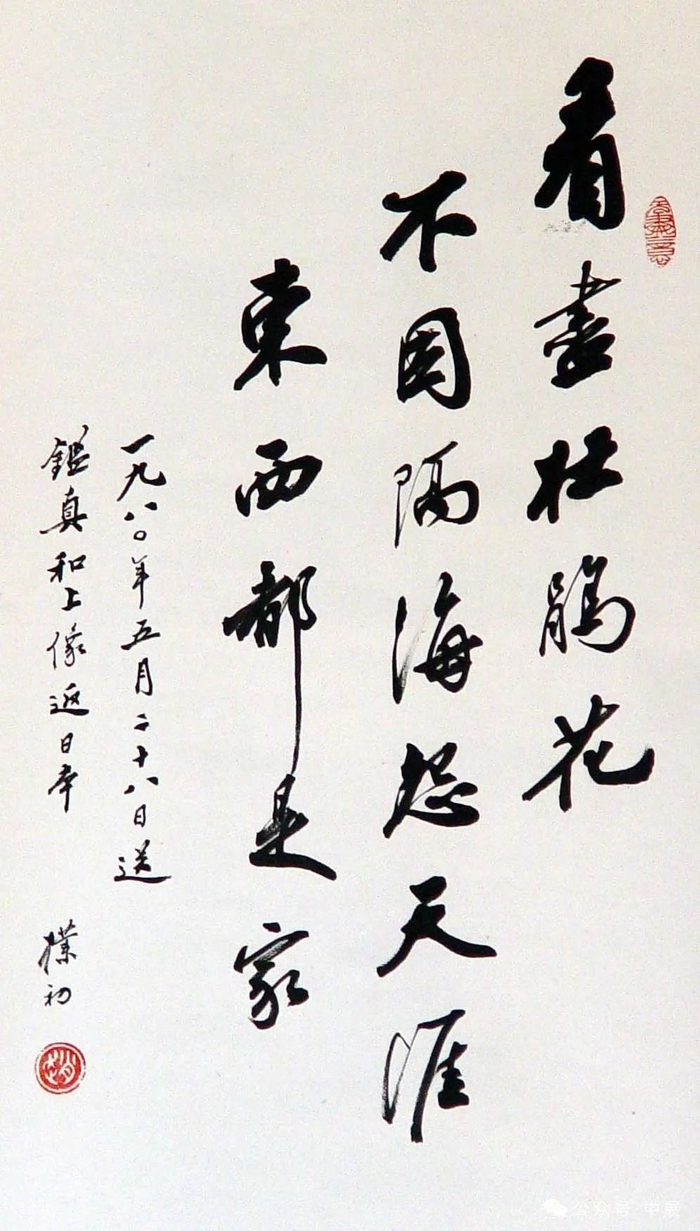 看盡杜鵑花
不因隔海怨天涯
東西都是家
一九八〇年五月二十八日送
鑑真和上像返日本
樸初
趙
公众号·中展